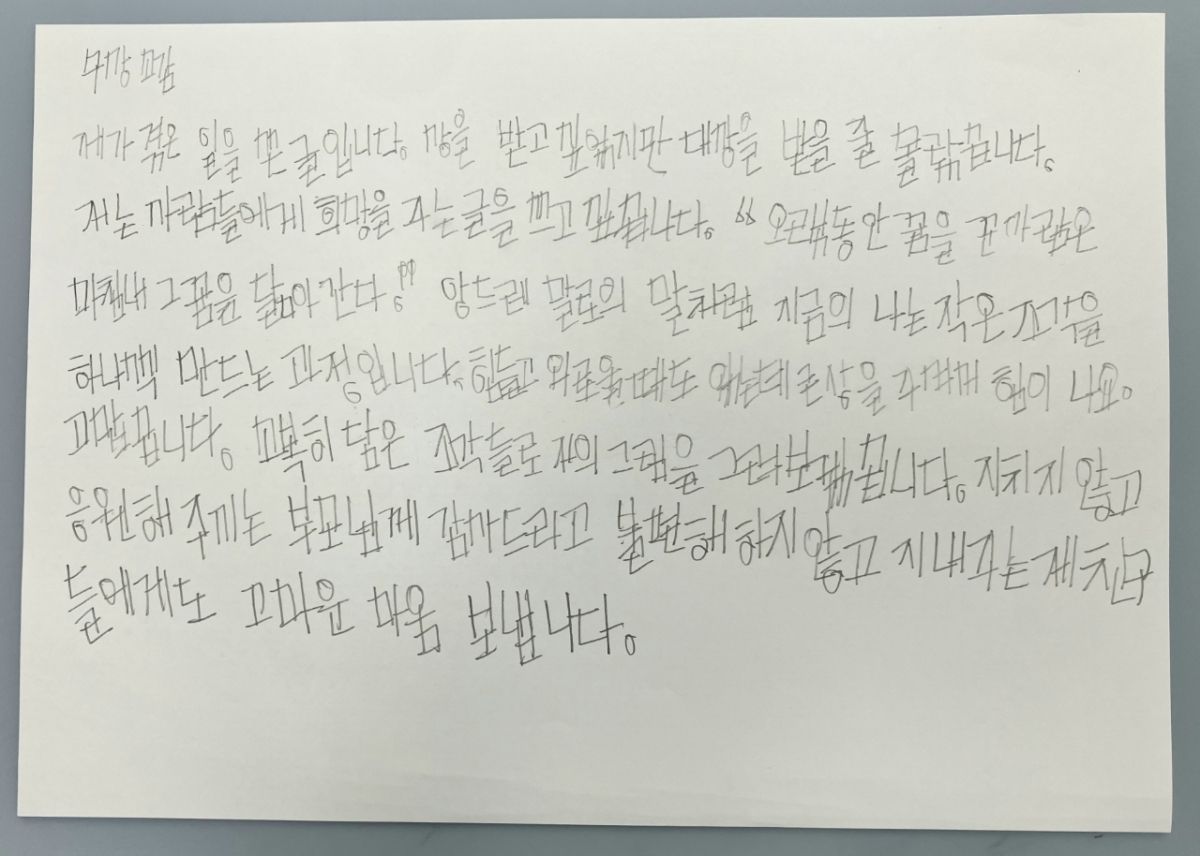 수상 소감
제가 겪은 일을 쓴 글입니다. 상을 받고 싶었지만 대상을 받을 줄 몰랐습니다.
저는 사람들에게 희망을 주는 글을 쓰고 싶습니다. “오랫동안 꿈을 꾼 사람은
마침내 그 꿈을 닮아 간다.” 앙드레 말로의 말처럼 지금의 나는 작은 조각을
하나씩 만드는 과정입니다. 힘들고 외로울 때도 있는데 큰 상을 주셔서 힘이 나요.
고맙습니다. 소복히 담은 조각들로 저의 그림을 그려보겠습니다. 지치지 않고
응원해 주시는 부모님께 감사드리고 불편해 하지 않고 지내주는 제 친구
들에게도 고마운 마음 보냅니다.